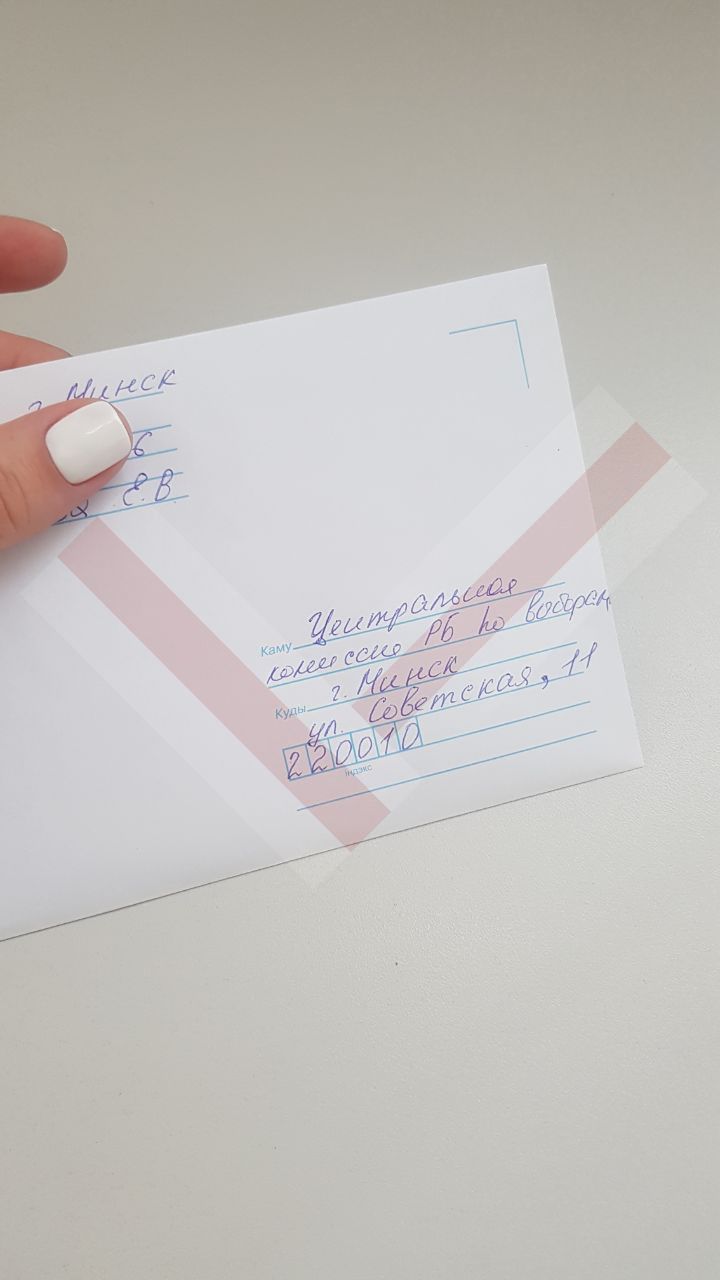 г. Минск
6
Е.В
Каму Центральная
комиссию РБ по выборам
Куды г. Минск
ул. Советская, 11
220010
індэкс